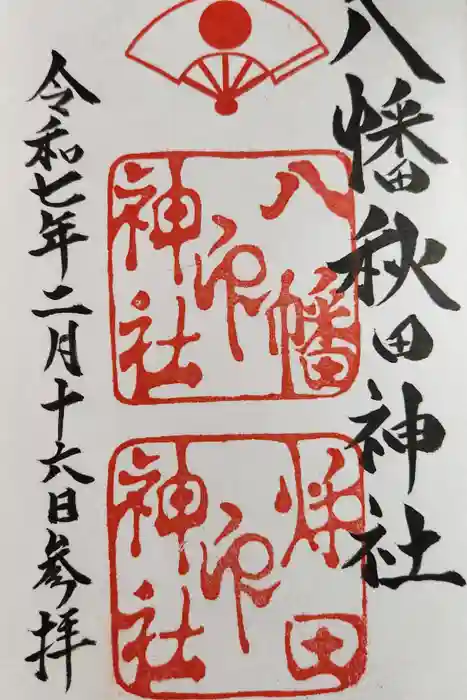 八幡秋田神社
八幡
神社
印
秋田
神社
印
令和七年二月十六日参拝